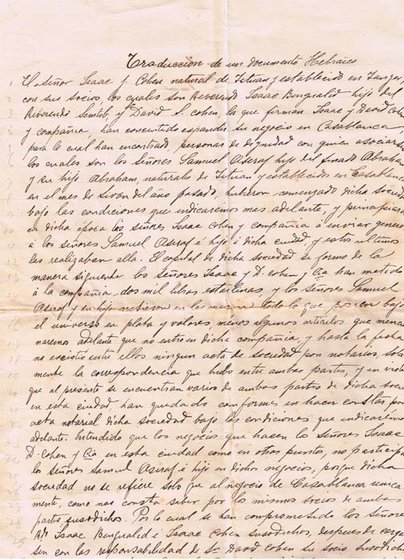 Traduccion de un documento Hebraico
El Señor Isaac J. Cohen natural de Tetuan y establecido en Tanger,
con sus socios, los cuales son Reverendo Isaac Bengualid hijo del
Reverendo Semtob, y David S. Cohen, la que firman Isaac y David Cohen
y compañia, han consentido espander su negocio en Casablanca,
para lo cual han encontrado personas de dignidad con quien asociarse
los cuales son los Señores Samuel Asseraf hijo del finado Abraham
y su hijo Abraham, naturales de Tetuan y establecido en Casablanca
en el mes de sivan del año pasado, hubieron comenzado dicha sociedad
bajo las condiciones que indicaremos mas adelante, y principiaron
en dicha epoca los señores Isaac Cohen y compañia á enviar generos
á los Señores Samuel Asseraf é hijo á dicha ciudad, y estos ultimos
las realizaban alla. El capital de dicha sociedad se forma de la
manera siguiente los Señores Isaac y D. Cohen y Cia han metido
á la compañia, dos mil libras esterlinas, y los Señores Samuel
Asseraf y su hijo metieron en la misma todo lo que poseen bajo
el universo en plata y valores, menos algunos articulos que mencio
naremos adelante que no entra en dicha compañia, y hasta la fecha
no ecsistia entre ellos ningun acta de sociedad por notarios sola
mente la correspondencia que hubo entre ambas partes, y en vista
que al presente se encuentran varios de ambas partes de dicha sociedad
en esta ciudad han quedado conformes en hacer constar por
acta notarial dicha sociedad bajo las condiciones que indicaremos
adelante. Entendido que los negocios que hacen los Señores Isaac
D. Cohen y Cia en esta ciudad como en otros puntos, no participan
los Señores Samuel Asseraf é hijo en dichos negocios, porque dicha
sociedad no se refiere solo que al negocio de Casablanca unica
mente, como nos consta saber por los mismos socios de ambas
partes susodichos. Por lo cual se han comprometido los Señores
Rdo Isaac Bengualid e Isaac Cohen susodichos, despues de cargar
sen con las responsabilidad de Sr David Cohen su socio susodicho